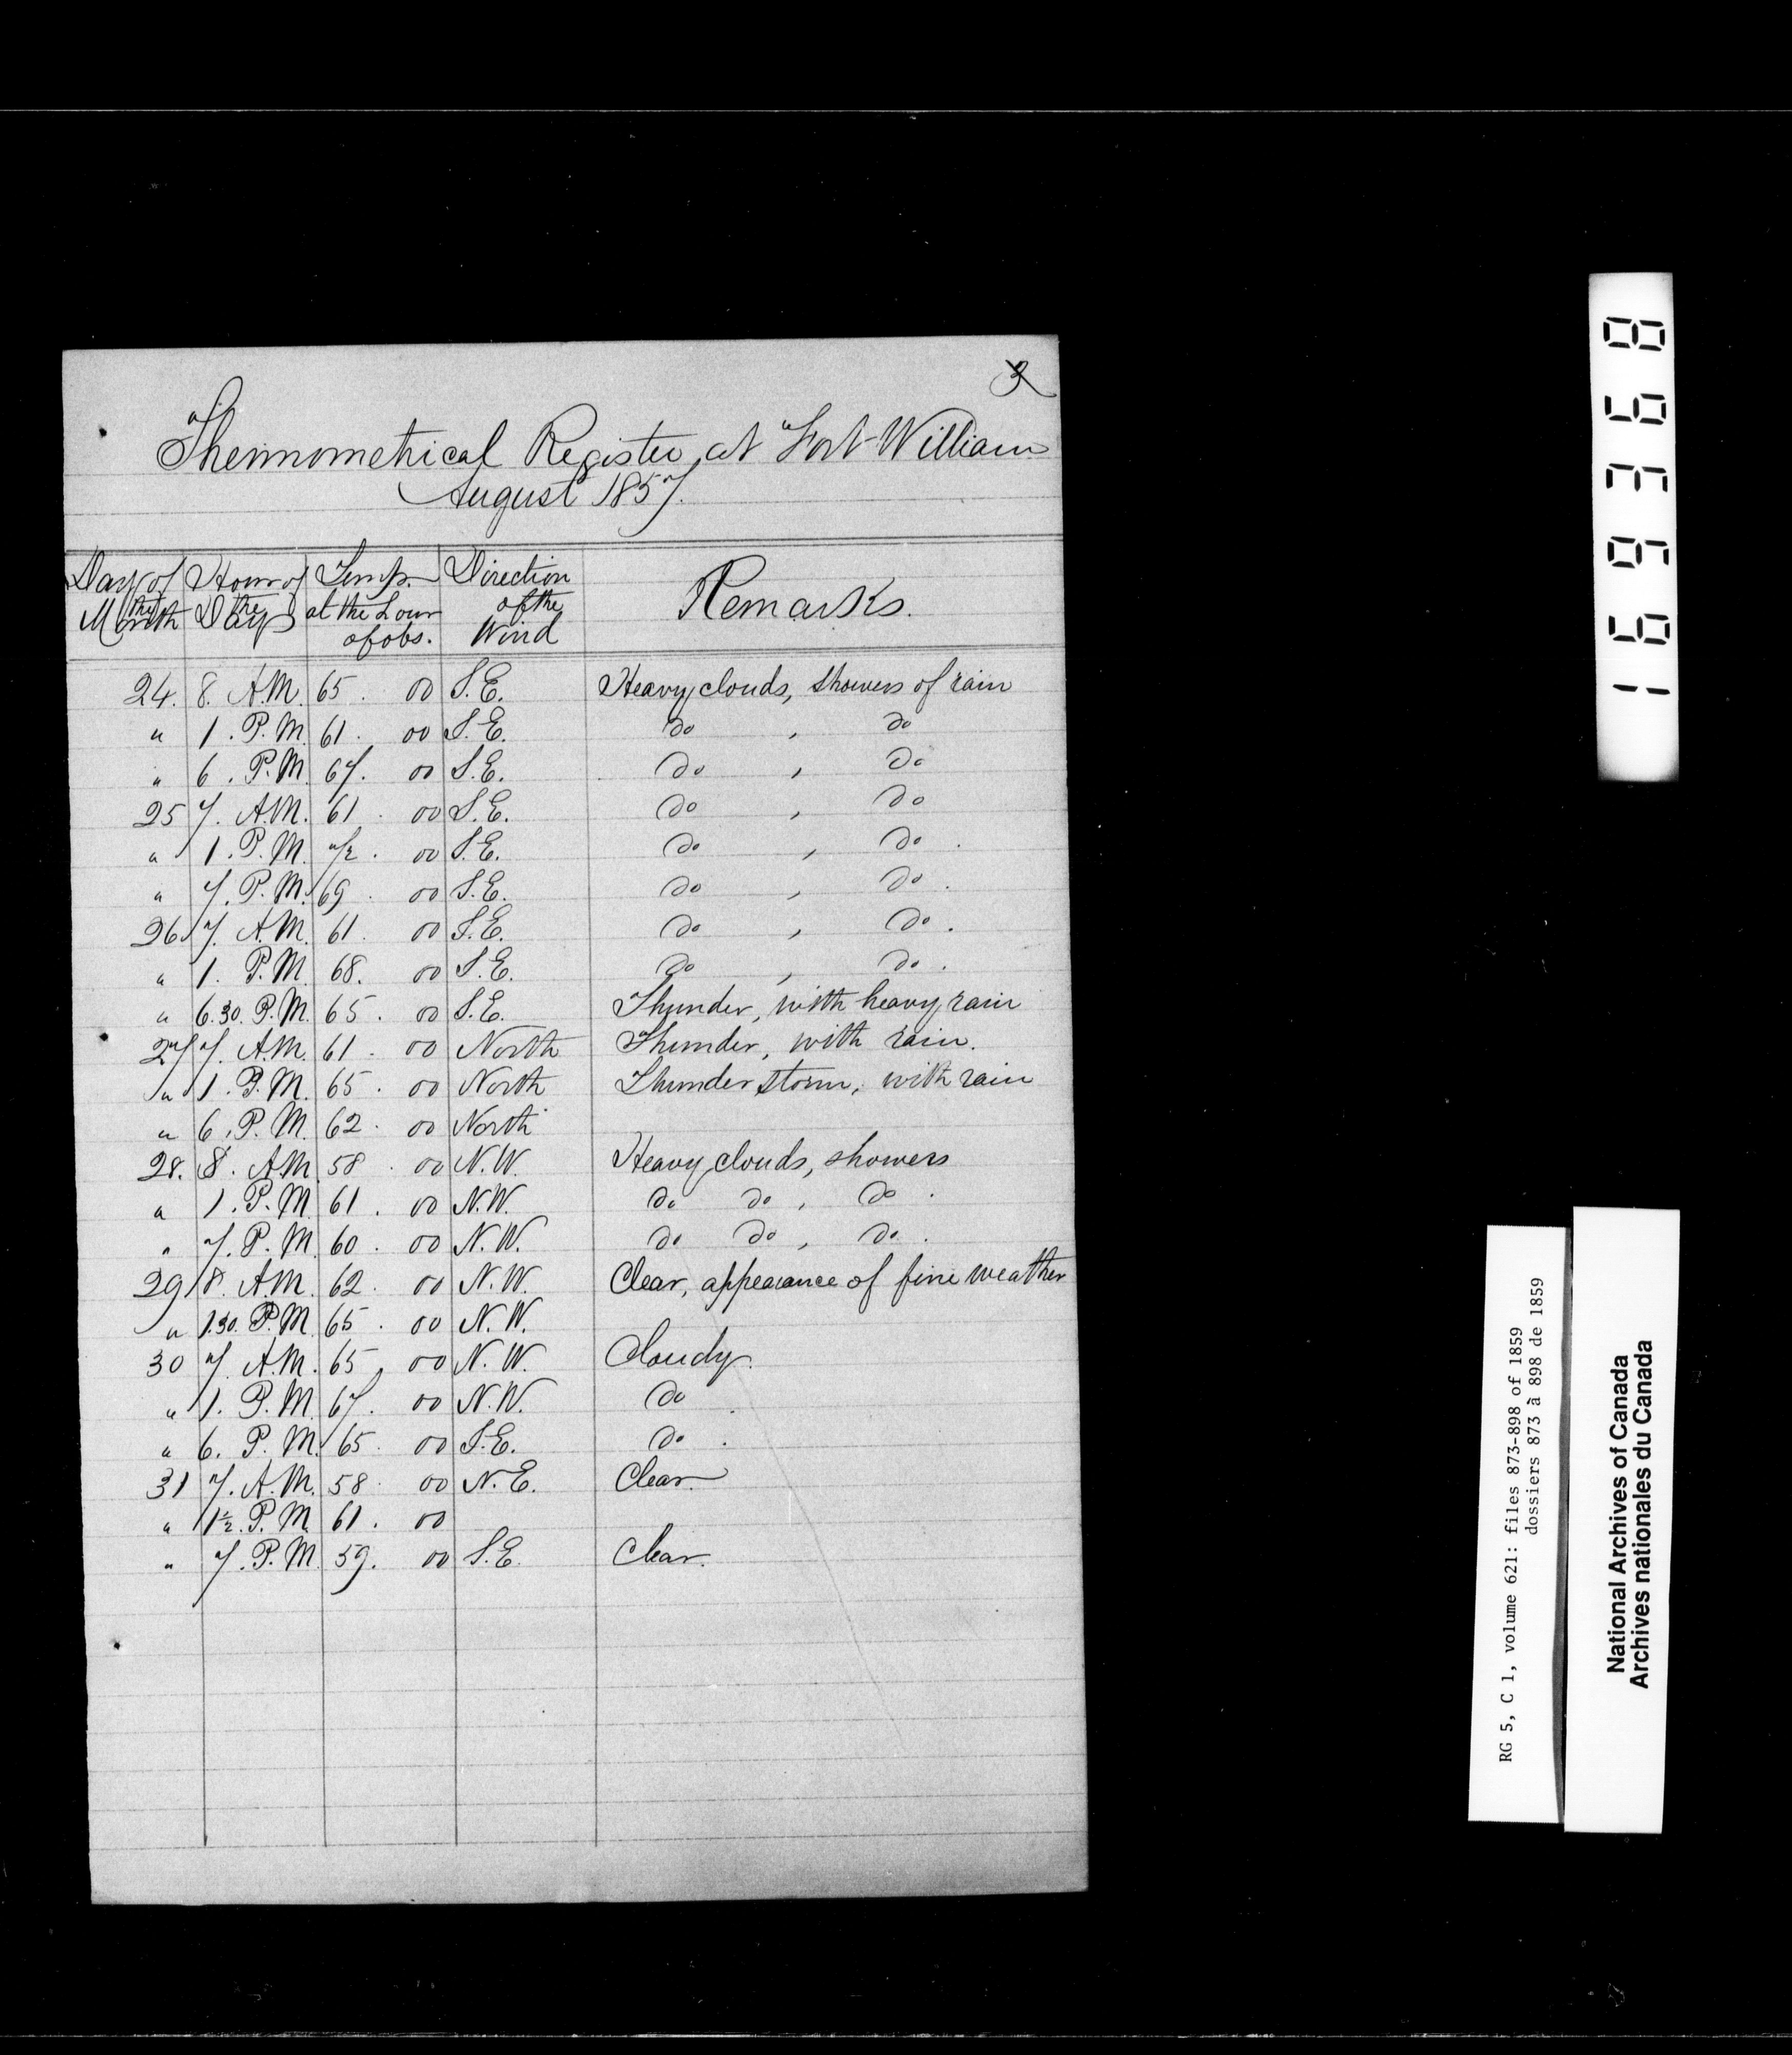 Thermometrical Register at Fort William
August 1857.
Day of the Month | Hour of the Day | Temp. at the hour of obs. | Direction of the Wind | Remarks.
24. 8. A.M. 65. 00 S.E. Heavy clouds, showers of rain
" 1. P.M. 61. 00 S.E. do , do
" 6. P.M. 67. 00 S.E. do , do
25 7. A.M. 61. 00 S.E. do , do
" 1. P.M. 72. 00 S.E. do , do.
" 7. P.M. 69. 00 S.E. do , do.
26 7. A.M. 61. 00 S.E. do , do.
" 1. P.M. 68. 00 S.E. do , do.
" 6.30. P.M. 65. 00 S.E. Thunder, with heavy rain
27 7. A.M. 61. 00 North Thunder, with rain.
" 1. P.M. 65. 00 North Thunder storm, with rain
" 6. P.M. 62. 00 North
28. 8. A.M. 58. 00 N.W. Heavy clouds, showers
" 1. P.M. 61. 00 N.W. do do, do.
" 7. P.M. 60. 00 N.W. do do, do.
29 8. A.M. 62. 00 N.W. Clear, appearance of fine weather
" 1.30. P.M. 65. 00 N.W.
30 7. A.M. 65. 00 N.W. Cloudy.
" 1. P.M. 67. 00 N.W. do.
" 6. P.M. 65. 00 S.E. do.
31 7. A.M. 58. 00 N.E. Clear.
" 1½. P.M. 61. 00
" 7. P.M. 59. 00 S.E. Clear.
169368
RG 5, C 1, volume 621: files 873-898 of 1859
dossiers 873 à 898 de 1859
National Archives of Canada
Archives nationales du Canada